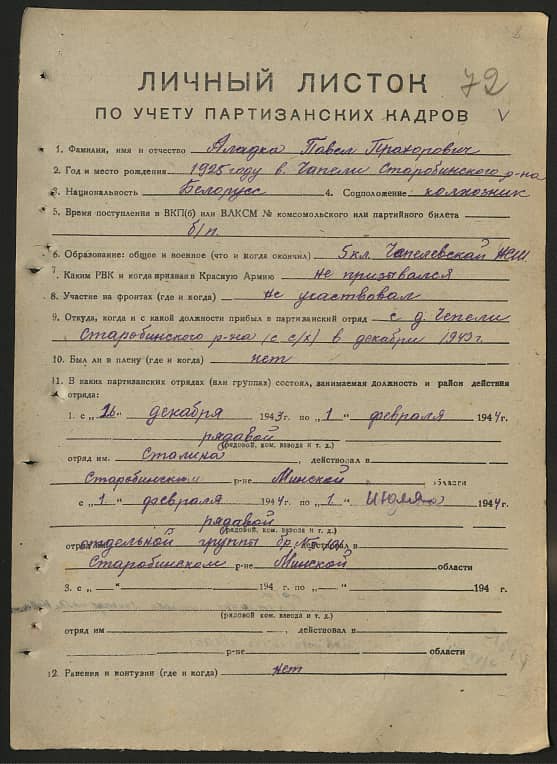 72
ЛИЧНЫЙ ЛИСТОК
ПО УЧЕТУ ПАРТИЗАНСКИХ КАДРОВ
1. Фамилия, имя и отчество Аладка Павел Прохорович
2. Год и место рождения 1925 году в. Чапели Старобинского р-на
3. Национальность Белорусс 4. Соцположение колхозник
5. Время поступления в ВКП(б) или ВЛКСМ № комсомольского или партийного билета
б/п
6. Образование: общее и военное (что и когда окончил) 5 кл. Чапелевской НСШ
7. Каким РВК и когда призван в Красную Армию не призывался
8. Участие на фронтах (где и когда) Не участвовал
9. Откуда, когда и с какой должности прибыл в партизанский отряд с д. Чепели
Старобинского р-на (с с/х) в декабри 1943 г.
10. Был ли в плену (где и когда) нет
11. В каких партизанских отрядах (или группах) состоял, занимаемая должность и район действия
отряда:
1. с „26“ декабря 1943 г. по „1“ февраля 1944 г.
рядавой
(рядовой, ком. взвода и т. д.)
отряд им. Сталина, действовал в
Старобинском р-не Минской области
с „1“ февраля 1944 г. по „1“ Июля 1944 г.
рядавой
(рядовой, ком. взвода и т. д.)
отдельной группы бр. действовал в
Старобинском р-не Минской области
3. с „—“ 194 г. по „—“ 194 г.
(рядовой, ком. взвода и т. д.)
отряд им , действовал в
р-не области
12. Ранения и контузии (где и когда) нет